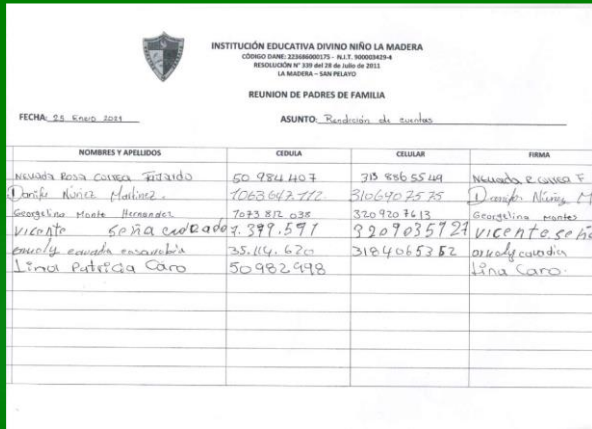 INSTITUCIÓN EDUCATIVA DIVINO NIÑO LA MADERA
CÓDIGO DANE: 223686000175 - N.I.T. 900003429-4
RESOLUCIÓN N° 339 del 28 de Julio de 2011
LA MADERA – SAN PELAYO
REUNION DE PADRES DE FAMILIA
FECHA: 25 Enero 2021 ASUNTO: Rendición de cuentas
NOMBRES Y APELLIDOS CEDULA CELULAR FIRMA
Nevada Rosa Correa 50 984 407 313 8865549 Nevada R Correa F
Núñez Martinez. 1063647112 3106907575 Núñez M
Georgelina Monte Hernandez 1073 812 038 320 920 7613 Georgelina Montes
Vicente Seña 7.399.591 3209035727 Vicente Seña
35.114.620 3184065352
Lina Patricia Caro 50982998 Lina Caro.